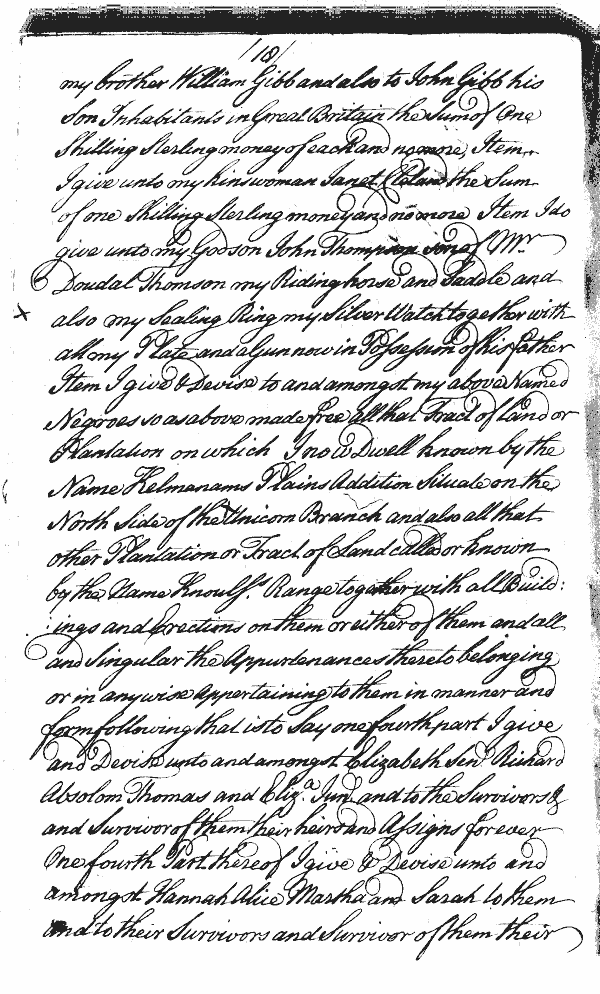 /18/
my brother William Gibb and also to John Gibb his
Son Inhabitants in Great Britain the Sum of One
Shilling Sterling money of each and no more, Item
I give unto my kinswoman Janet the Sum
of one Shilling Sterling money and no more Item I do
give unto my Godson John Thompson son of Mr
Doudal Thomson my Riding horse and Saddle and
also my Sealing Ring my Silver Watch together with
all my Plate and a Gun now in Possession of his father
Item I give & Devise to and amongst my above Named
Negroes so as above made free all that Tract of Land or
Plantation on which I now Dwell known by the
Name Kelmanams Plains Addition Situate on the
North Side of the Unicorn Branch and also all that
other Plantation or Tract of Land called or known
by the Name Range together with all Build:
:ings and Erections on them or either of them and all
and Singular the Appurtenances thereto belonging
or in any wise appertaining to them in manner and
form following that is to Say one fourth part I give
and Devise unto and amongst Elizabeth Senr Richard
Absolom Thomas and Eliz.a Junr and to the Survivors &
and Survivor of them their heirs and Assigns forever
One fourth Part thereof I give & Devise unto and
amongst Hannah Alice Martha and Sarah to them
and to their Survivors and Survivor of them their